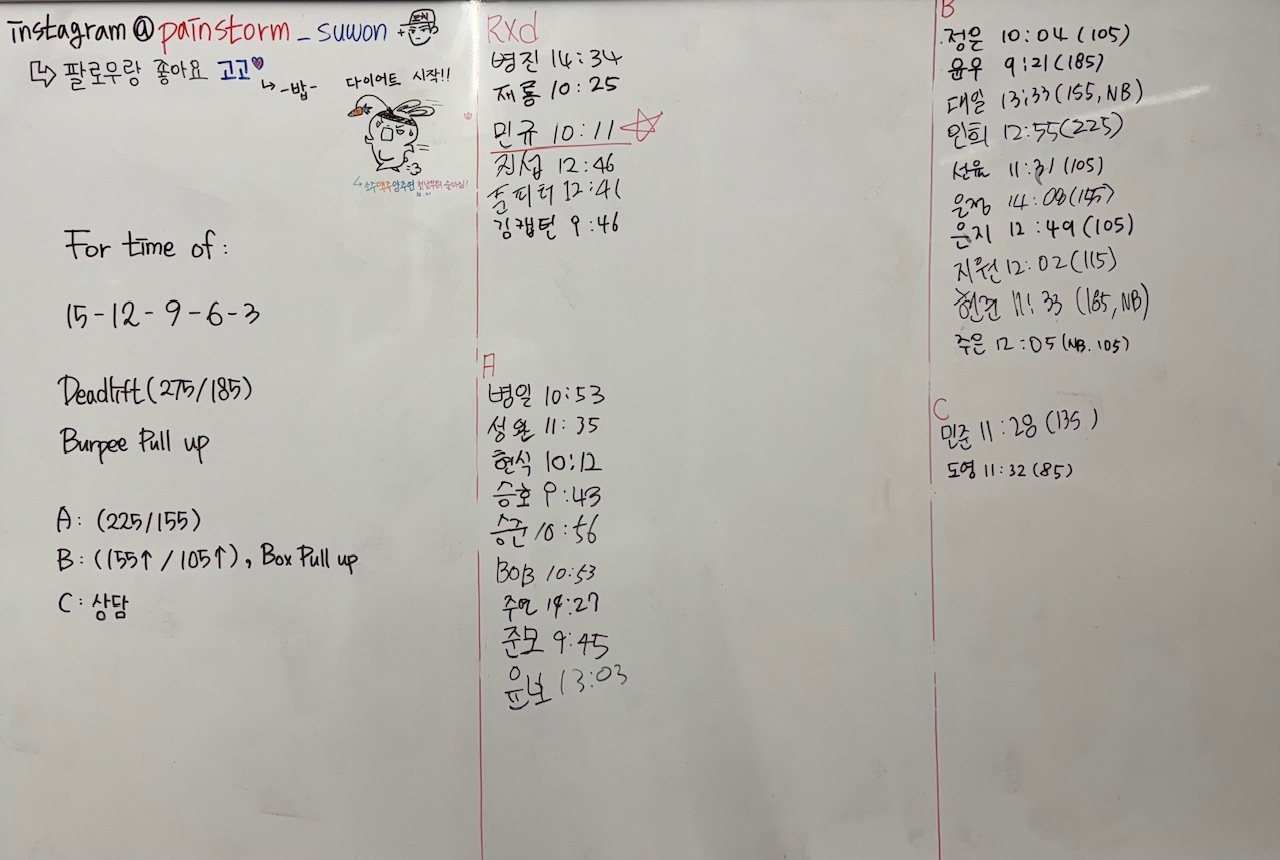 instagram@painstorm_suwon
팔로우랑 좋아요 고고
-밥-
다이어트 시작!!
소주맥주양주연 첫날부터 술마심!
For time of:
15-12-9-6-3
Deadlift(275/185)
Burpee Pull up
A: (225/155)
B: (155↑/105↑), Box Pull up
C: 상담
Rxd
병진 14:34
재룡 10:25
민규 10:11
지섭 12:46
줄피터 12:41
김캡틴 9:46
A
병일 10:53
성완 11:35
현식 10:12
승호 9:43
승준 10:56
BOB 10:53
주연 14:27
준모 9:45
윤보 13:03
B
정은 10:04(105)
윤우 9:21(185)
대일 13:33(155,NB)
인희 12:55(225)
선유 11:31(105)
은정 14:08(155)
은지 12:49(105)
지원 12:02(115)
현준 11:33 (185,NB)
주은 12:05(NB.105)
C
민준 11:28(135)
도영 11:32(85)